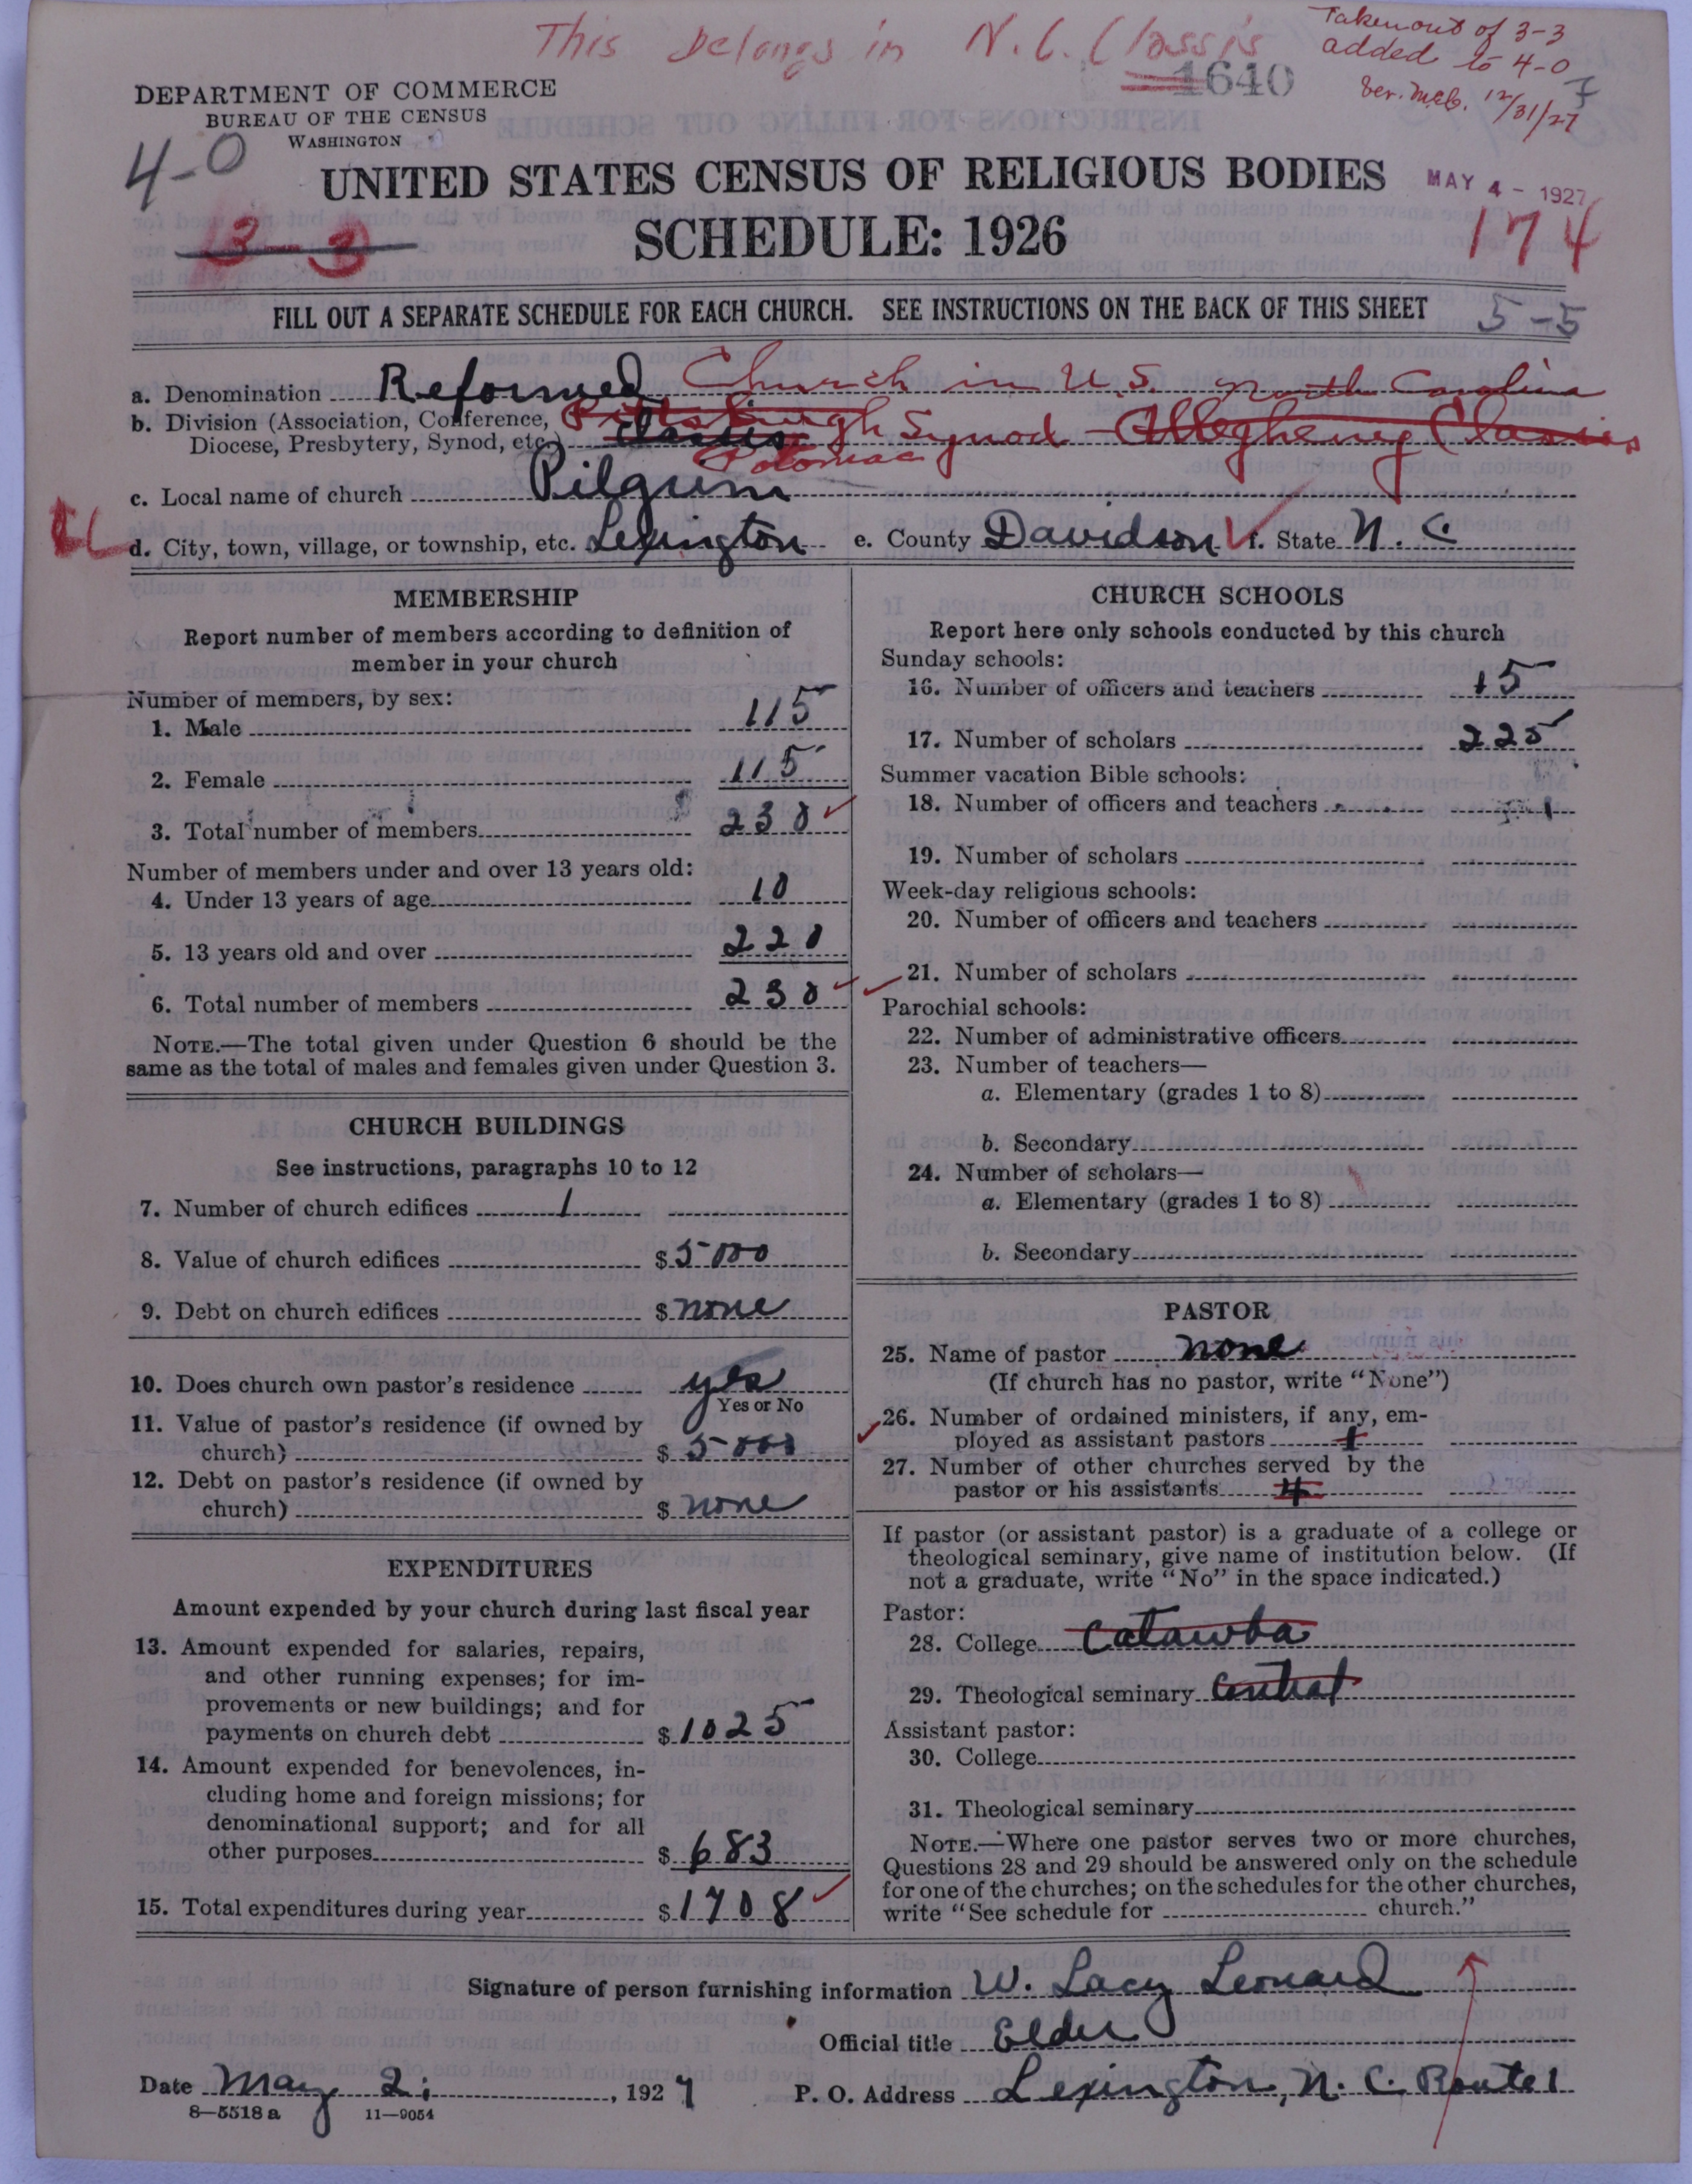 This belongs in N.C. Classis
Taken out of 3-3
added to 4-0
Ver. McC. 12/31/27
1640
DEPARTMENT OF COMMERCE
BUREAU OF THE CENSUS
WASHINGTON
4-0
UNITED STATES CENSUS OF RELIGIOUS BODIES
MAY 4 - 1927
3-3
SCHEDULE: 1926
174
FILL OUT A SEPARATE SCHEDULE FOR EACH CHURCH. SEE INSTRUCTIONS ON THE BACK OF THIS SHEET
5-5
a. Denomination Reformed Church in U.S. North Carolina
b. Division (Association, Conference, Pittsburgh Synod - Allegheny Classis
Diocese, Presbytery, Synod, etc.) Classis
Potomac
c. Local name of church Pilgrim
d. City, town, village, or township, etc. Lexington e. County Davidson f. State N. C
MEMBERSHIP
Report number of members according to definition of
member in your church
Number of members, by sex:
1. Male 115
2. Female 115
3. Total number of members 230
Number of members under and over 13 years old:
4. Under 13 years of age 10
5. 13 years old and over 220
6. Total number of members 230
NOTE.—The total given under Question 6 should be the
same as the total of males and females given under Question 3.
CHURCH BUILDINGS
See instructions, paragraphs 10 to 12
7. Number of church edifices 1
8. Value of church edifices $5000
9. Debt on church edifices $none
10. Does church own pastor's residence yes
Yes or No
11. Value of pastor's residence (if owned by
church) $5000
12. Debt on pastor's residence (if owned by
church) $none
EXPENDITURES
Amount expended by your church during last fiscal year
13. Amount expended for salaries, repairs,
and other running expenses; for im-
provements or new buildings; and for
payments on church debt $1025
14. Amount expended for benevolences, in-
cluding home and foreign missions; for
denominational support; and for all
other purposes $683
15. Total expenditures during year $1708
CHURCH SCHOOLS
Report here only schools conducted by this church
Sunday schools:
16. Number of officers and teachers 15
17. Number of scholars 225
Summer vacation Bible schools:
18. Number of officers and teachers
19. Number of scholars
Week-day religious schools:
20. Number of officers and teachers
21. Number of scholars
Parochial schools:
22. Number of administrative officers
23. Number of teachers—
a. Elementary (grades 1 to 8)
b. Secondary
24. Number of scholars—
a. Elementary (grades 1 to 8)
b. Secondary
PASTOR
25. Name of pastor none
(If church has no pastor, write "None")
26. Number of ordained ministers, if any, em-
ployed as assistant pastors 1
27. Number of other churches served by the
pastor or his assistants 4
If pastor (or assistant pastor) is a graduate of a college or
theological seminary, give name of institution below. (If
not a graduate, write "No" in the space indicated.)
Pastor:
28. College Catawba
29. Theological seminary Central
Assistant pastor:
30. College
31. Theological seminary
NOTE.—Where one pastor serves two or more churches,
Questions 28 and 29 should be answered only on the schedule
for one of the churches; on the schedules for the other churches,
write "See schedule for church."
Signature of person furnishing information W. Lacy Leonard
Official title Elder
Date May 2, 1927 P. O. Address Lexington, N. C. Route 1
8—5518 a 11—9054